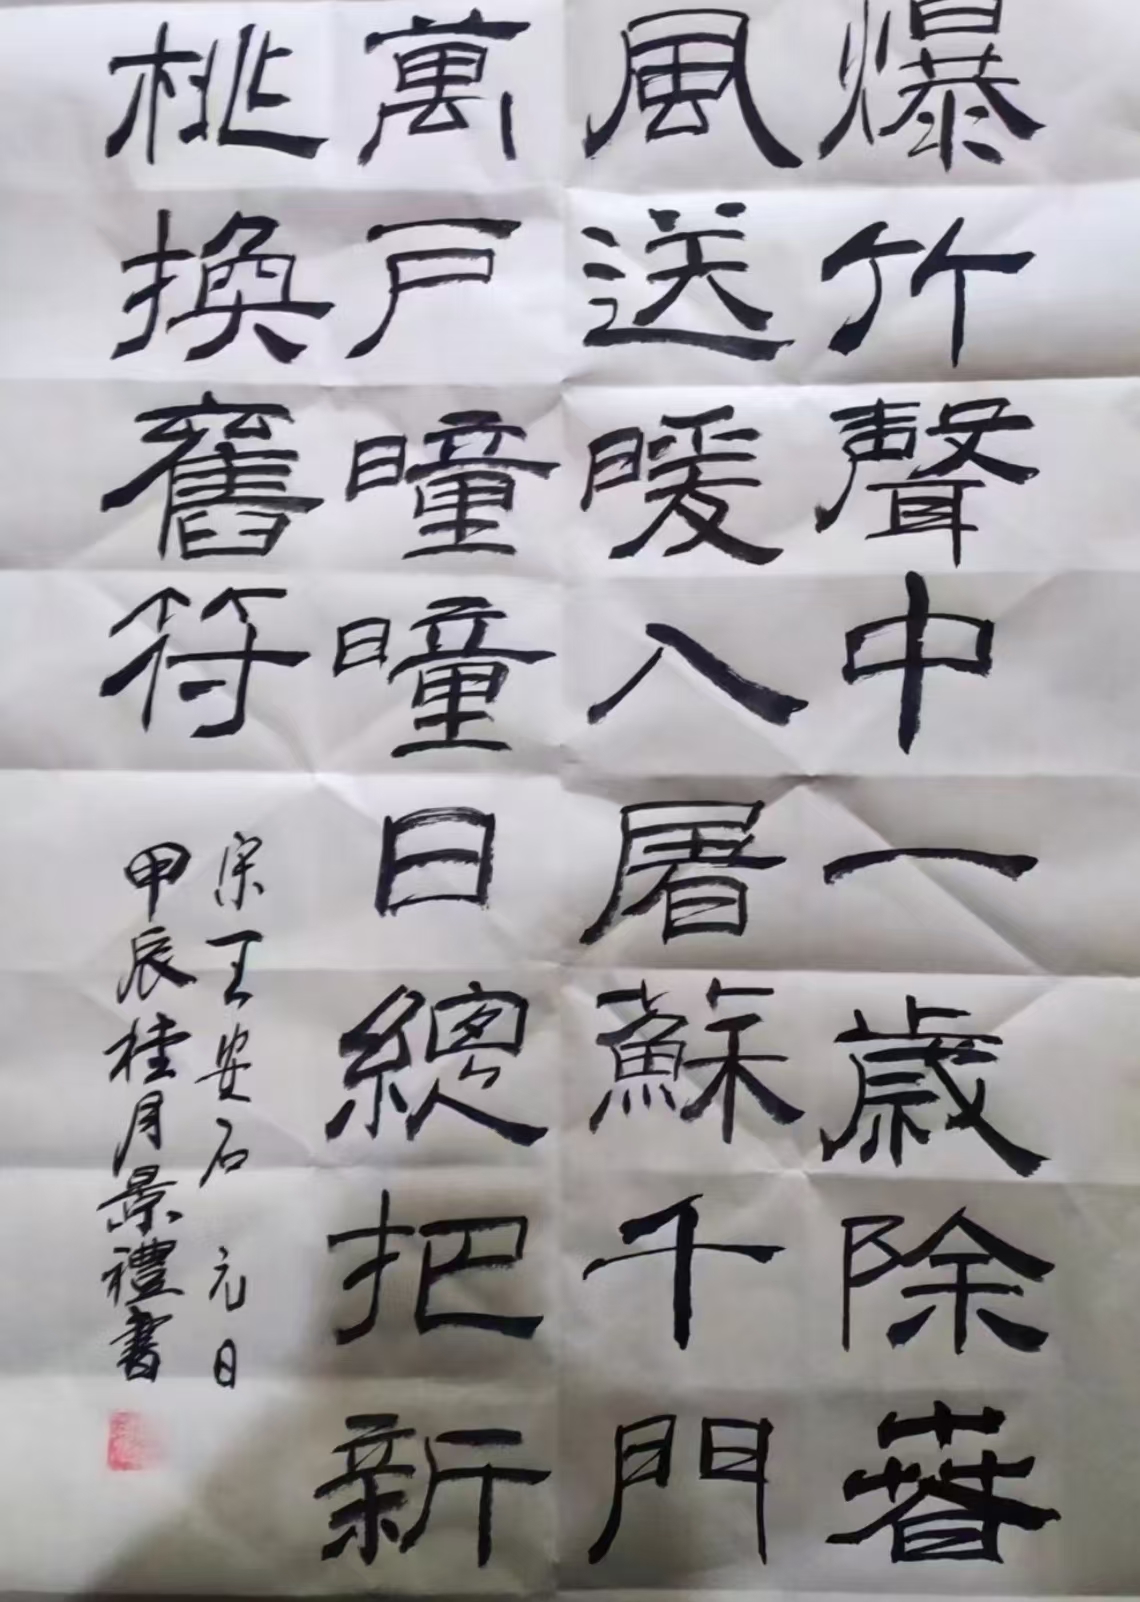 爆竹聲中一歲除萅
風送暖入屠蘇千門
萬戶曈曈日總把新
桃換舊符
宋王安石 元日
甲辰桂月景禮書